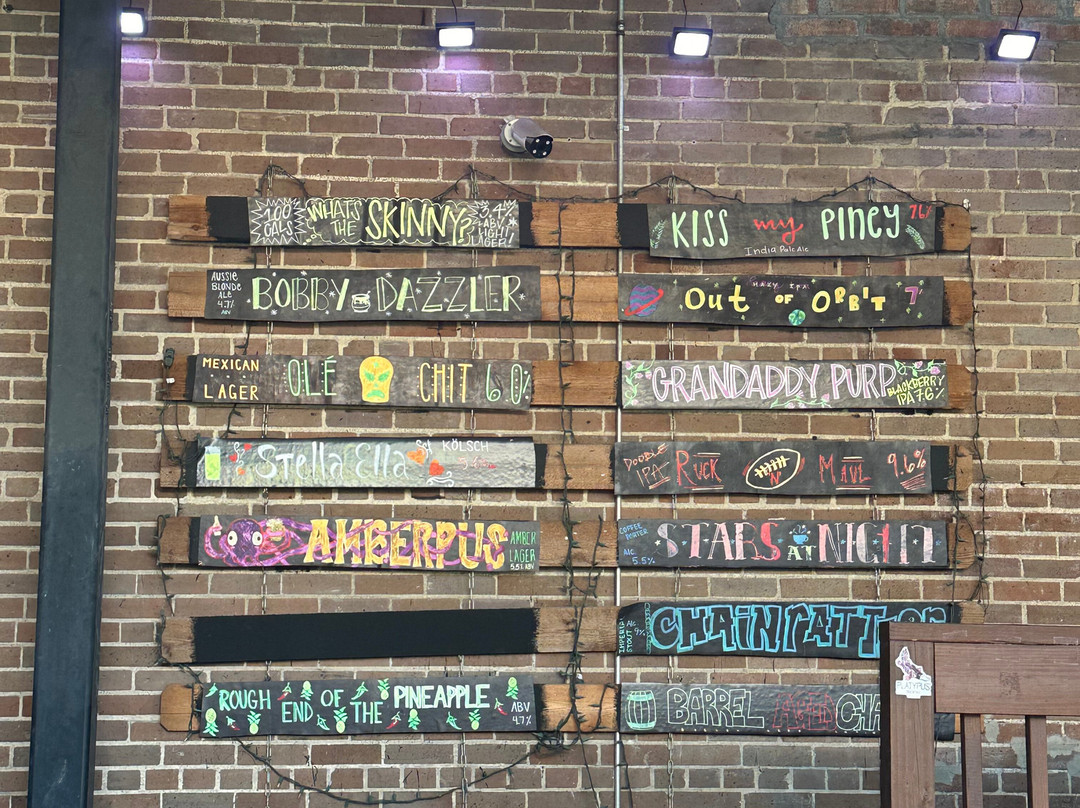 100 CALS WHAT'S THE SKINNY? 3.4% ABV LIGHT LAGER!
AUSSIE BLONDE ALE 4.7% ABV BOBBY DAZZLER
MEXICAN LAGER OLÉ CHIT 6.0%
Stella Ella KÖLSCH
AMBERPUS AMBER LAGER 5.5% ABV
ROUGH END OF THE PINEAPPLE ABV 4.7%
KISS my PINEY 7.6%
India Pale Ale
HAZY IPA
Out OF ORBIT 7
GRANDADDY PURP BLACKBERRY IPA 7.6%
DOUBLE IPA RUCK 'N' MAUL 9.6%
COFFEE PORTER ALC 5.5% STARS AT NIGHT
IMPERIAL STOUT ALC 9%
BARREL AGED CHA
PLATYPUS